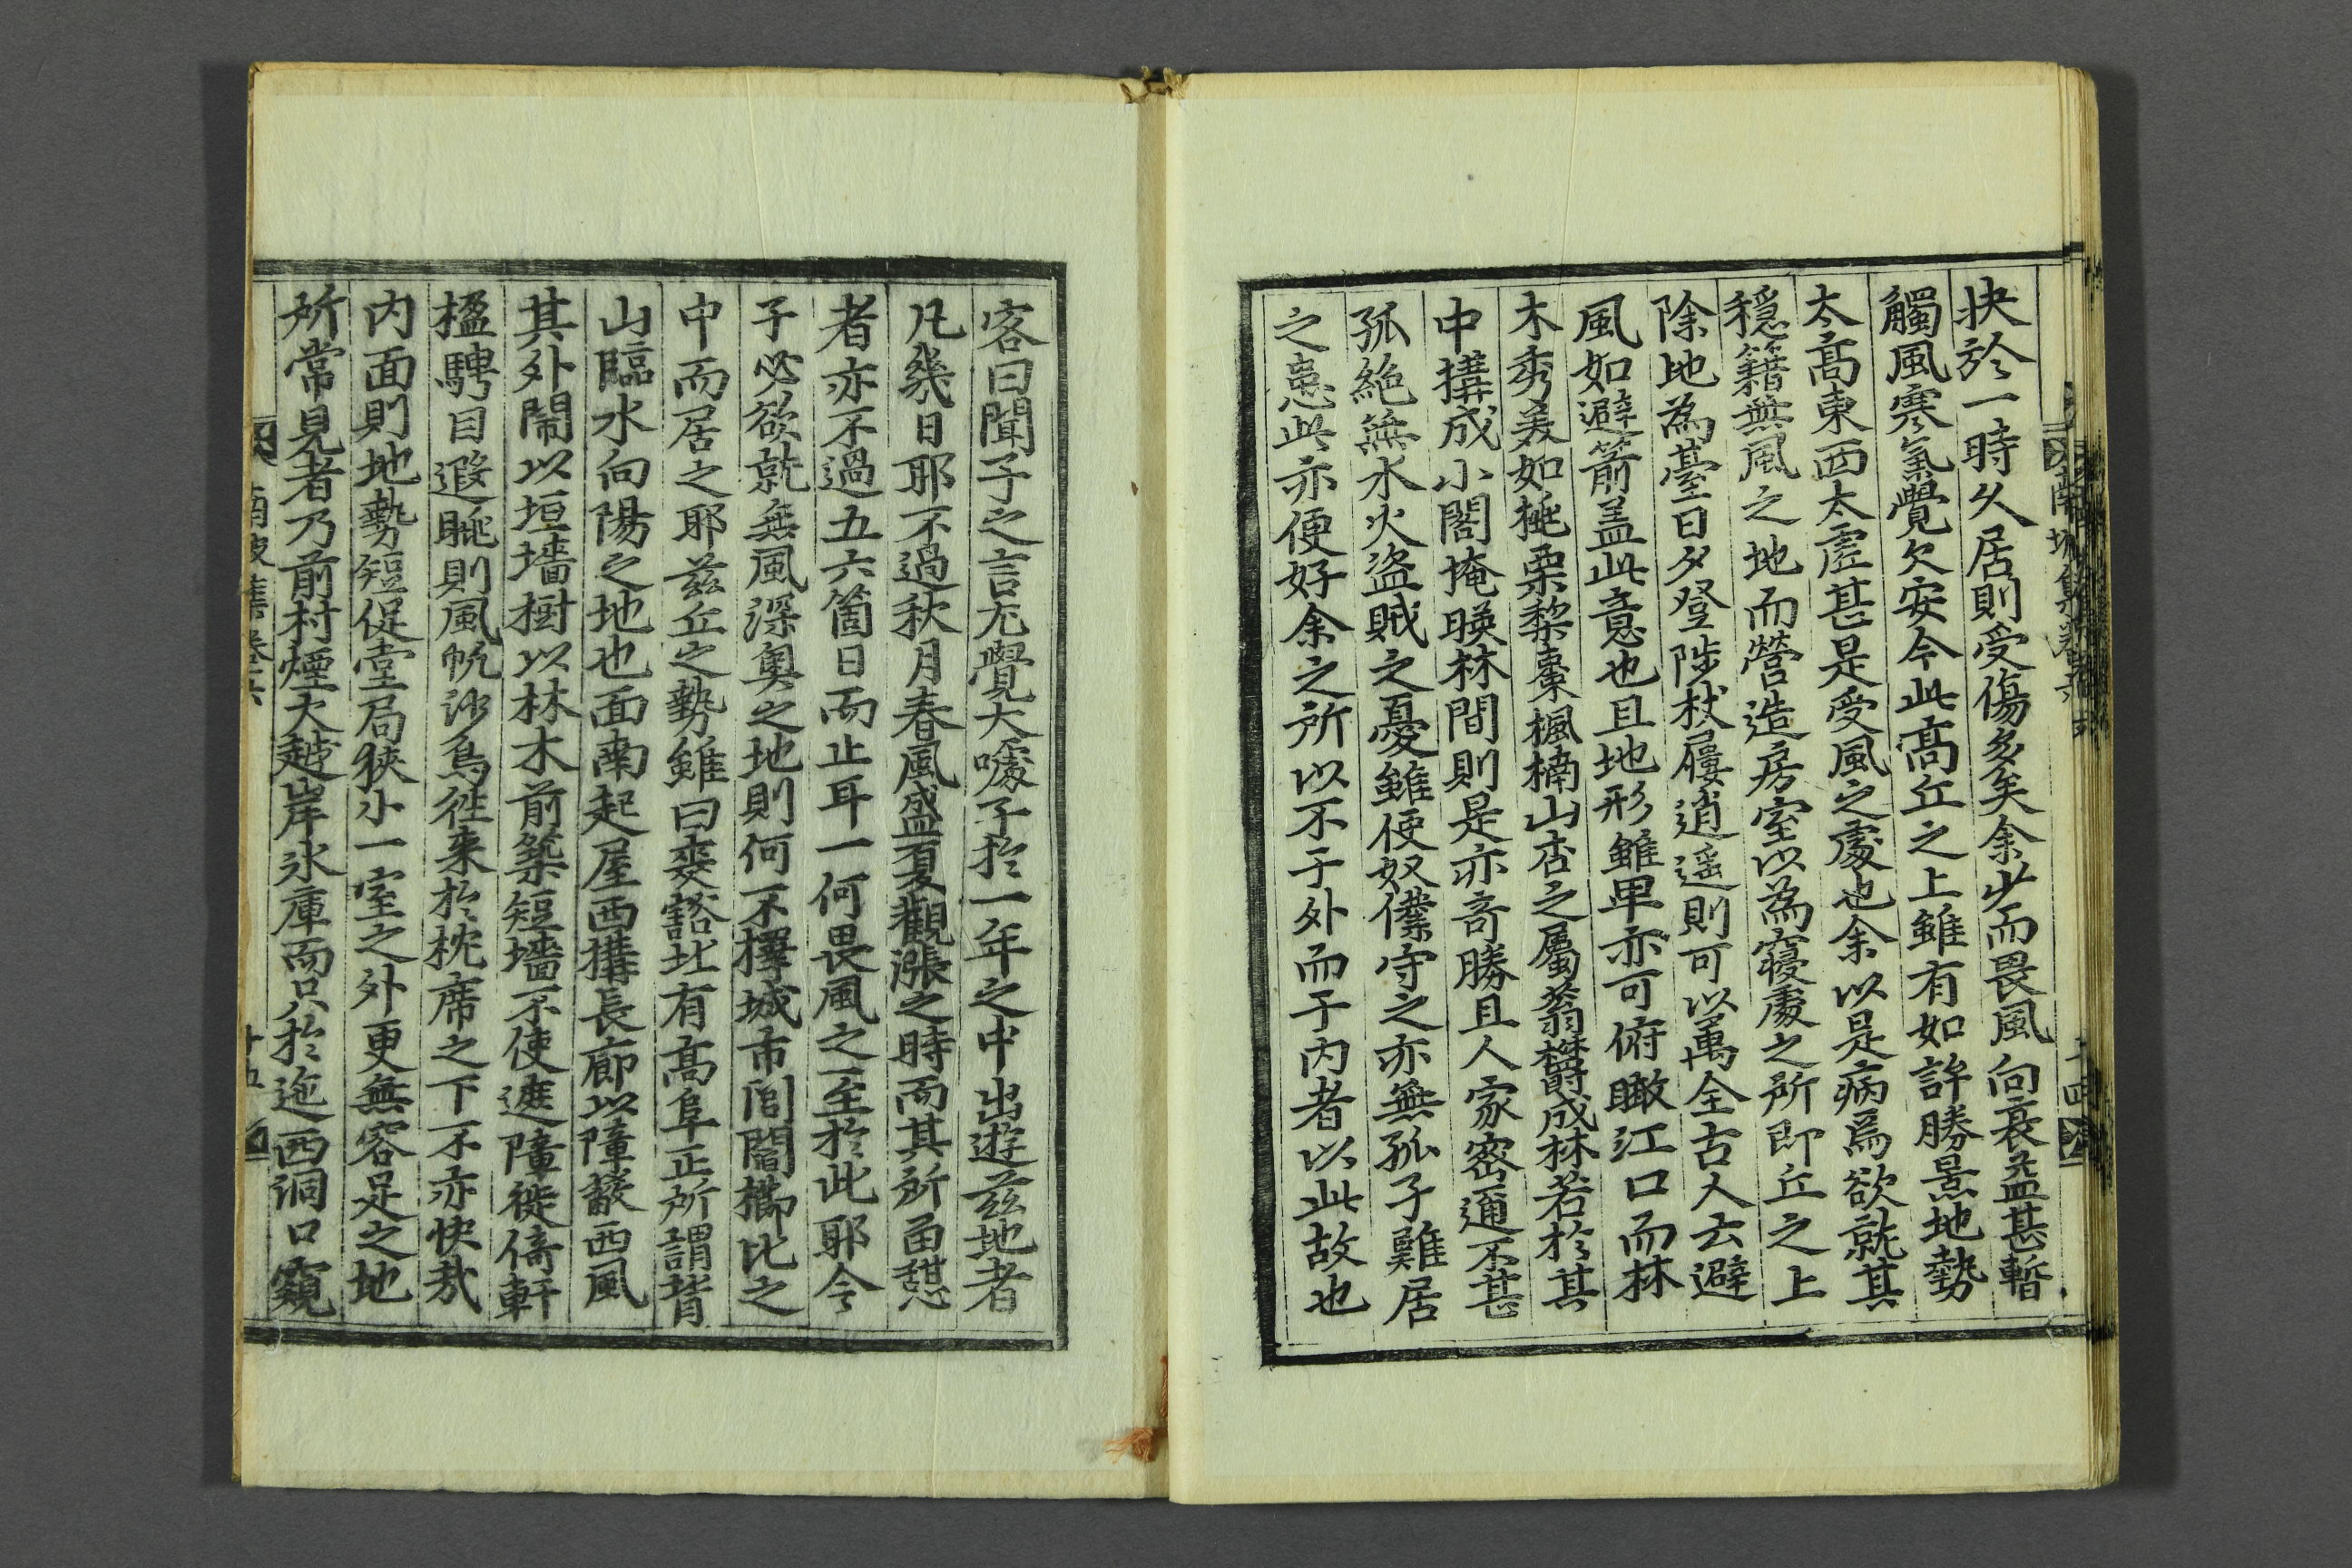 快於一時久居則受傷多矣余少而畏風向衰益甚暫
觸風寒氣覺欠安今此高丘之上雖有如許勝景地勢
太高東西太虛甚是受風之處也余以是病焉欲就其
穩籍無風之地而營造房室以為寢處之所即丘之上
除地為臺日夕登陟杖屨逍遥則可以萬全古人云避
風如避箭盖此意也且地形雖卑亦可俯瞰江口而林
木秀美如桃栗梨棗楓楠山杏之屬蓊欝成林若於其
中搆成小閣掩暎林間則是亦奇勝且人家密邇不甚
孤絶無水火盜賊之憂雖使奴僕守之亦無孤子難居
之患此亦便好余之所以不于外而于内者以此故也
客曰聞子之言尤覺大噱子於一年之中出遊茲地者
凡幾日耶不過秋月春風盛夏觀漲之時而其所畱憇
者亦不過五六箇日而止耳一何畏風之至於此耶今
子必欲就無風深奥之地則何不擇城市閭閻櫛比之
中而居之耶兹丘之勢雖曰爽豁北有高阜正所謂背
山臨水向陽之地也面南起屋西搆長廊以障蔽西風
其外閙以垣墻樹以林木前築短墻不使遮障徙倚軒
楹騁目遐眺則風帆沙鳥徃来於枕席之下不亦快哉
内面則地勢短促堂局狹小一室之外更無容足之地
所常見者乃前村煙火越岸氷庫而只於迤西洞口窺